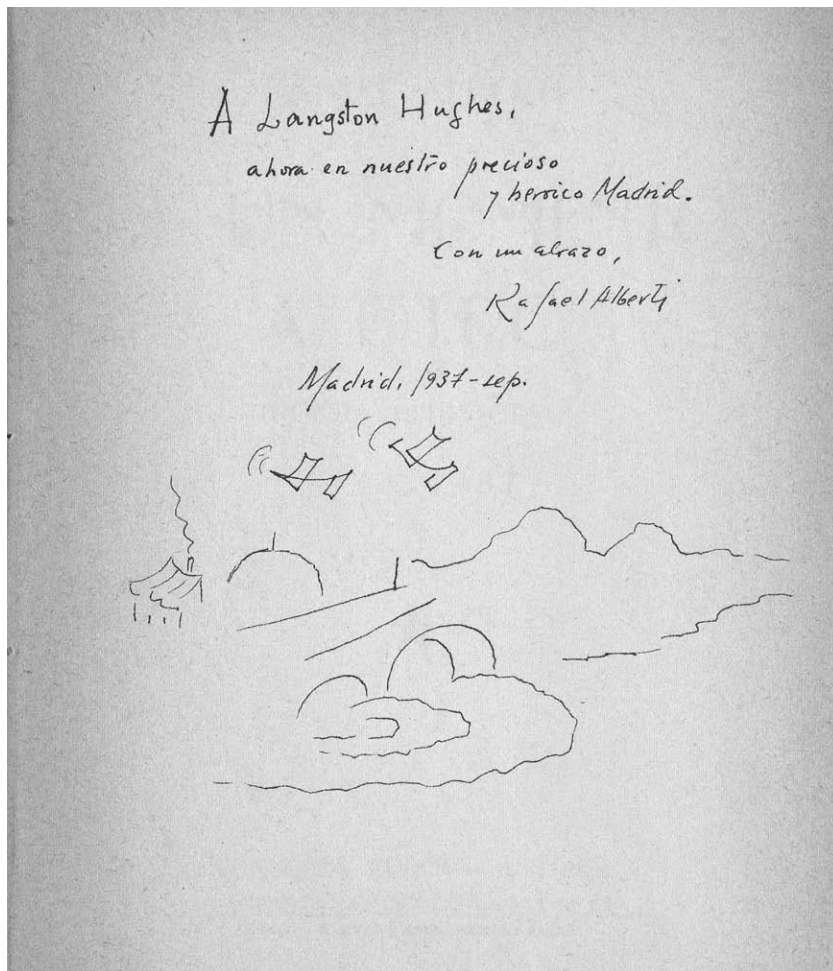 A Langston Hughes,
ahora en nuestro precioso
y heroico Madrid.
Con un abrazo,
Rafael Alberti
Madrid, 1937-sep.